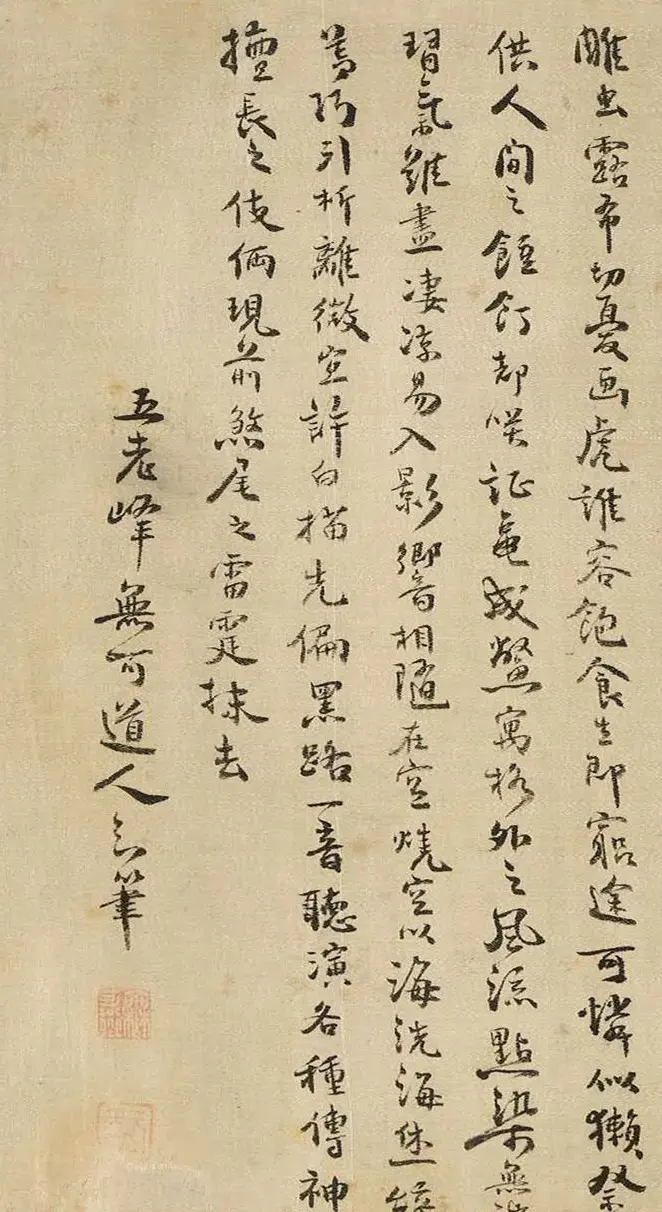 雕虫露布切憂画虎誰容飽食生即窮途可憐似獺祭
供人間之飣却咲証龜成鱉寓格外之風流點染無
習氣難盡凄涼易入影響相隨在空燒空以海洗海
引析離微空許白描先偏黑路一音聽演各種傳神
擅長之伎倆現前煞尾之雷霆抹去
五老峰無可道人筆